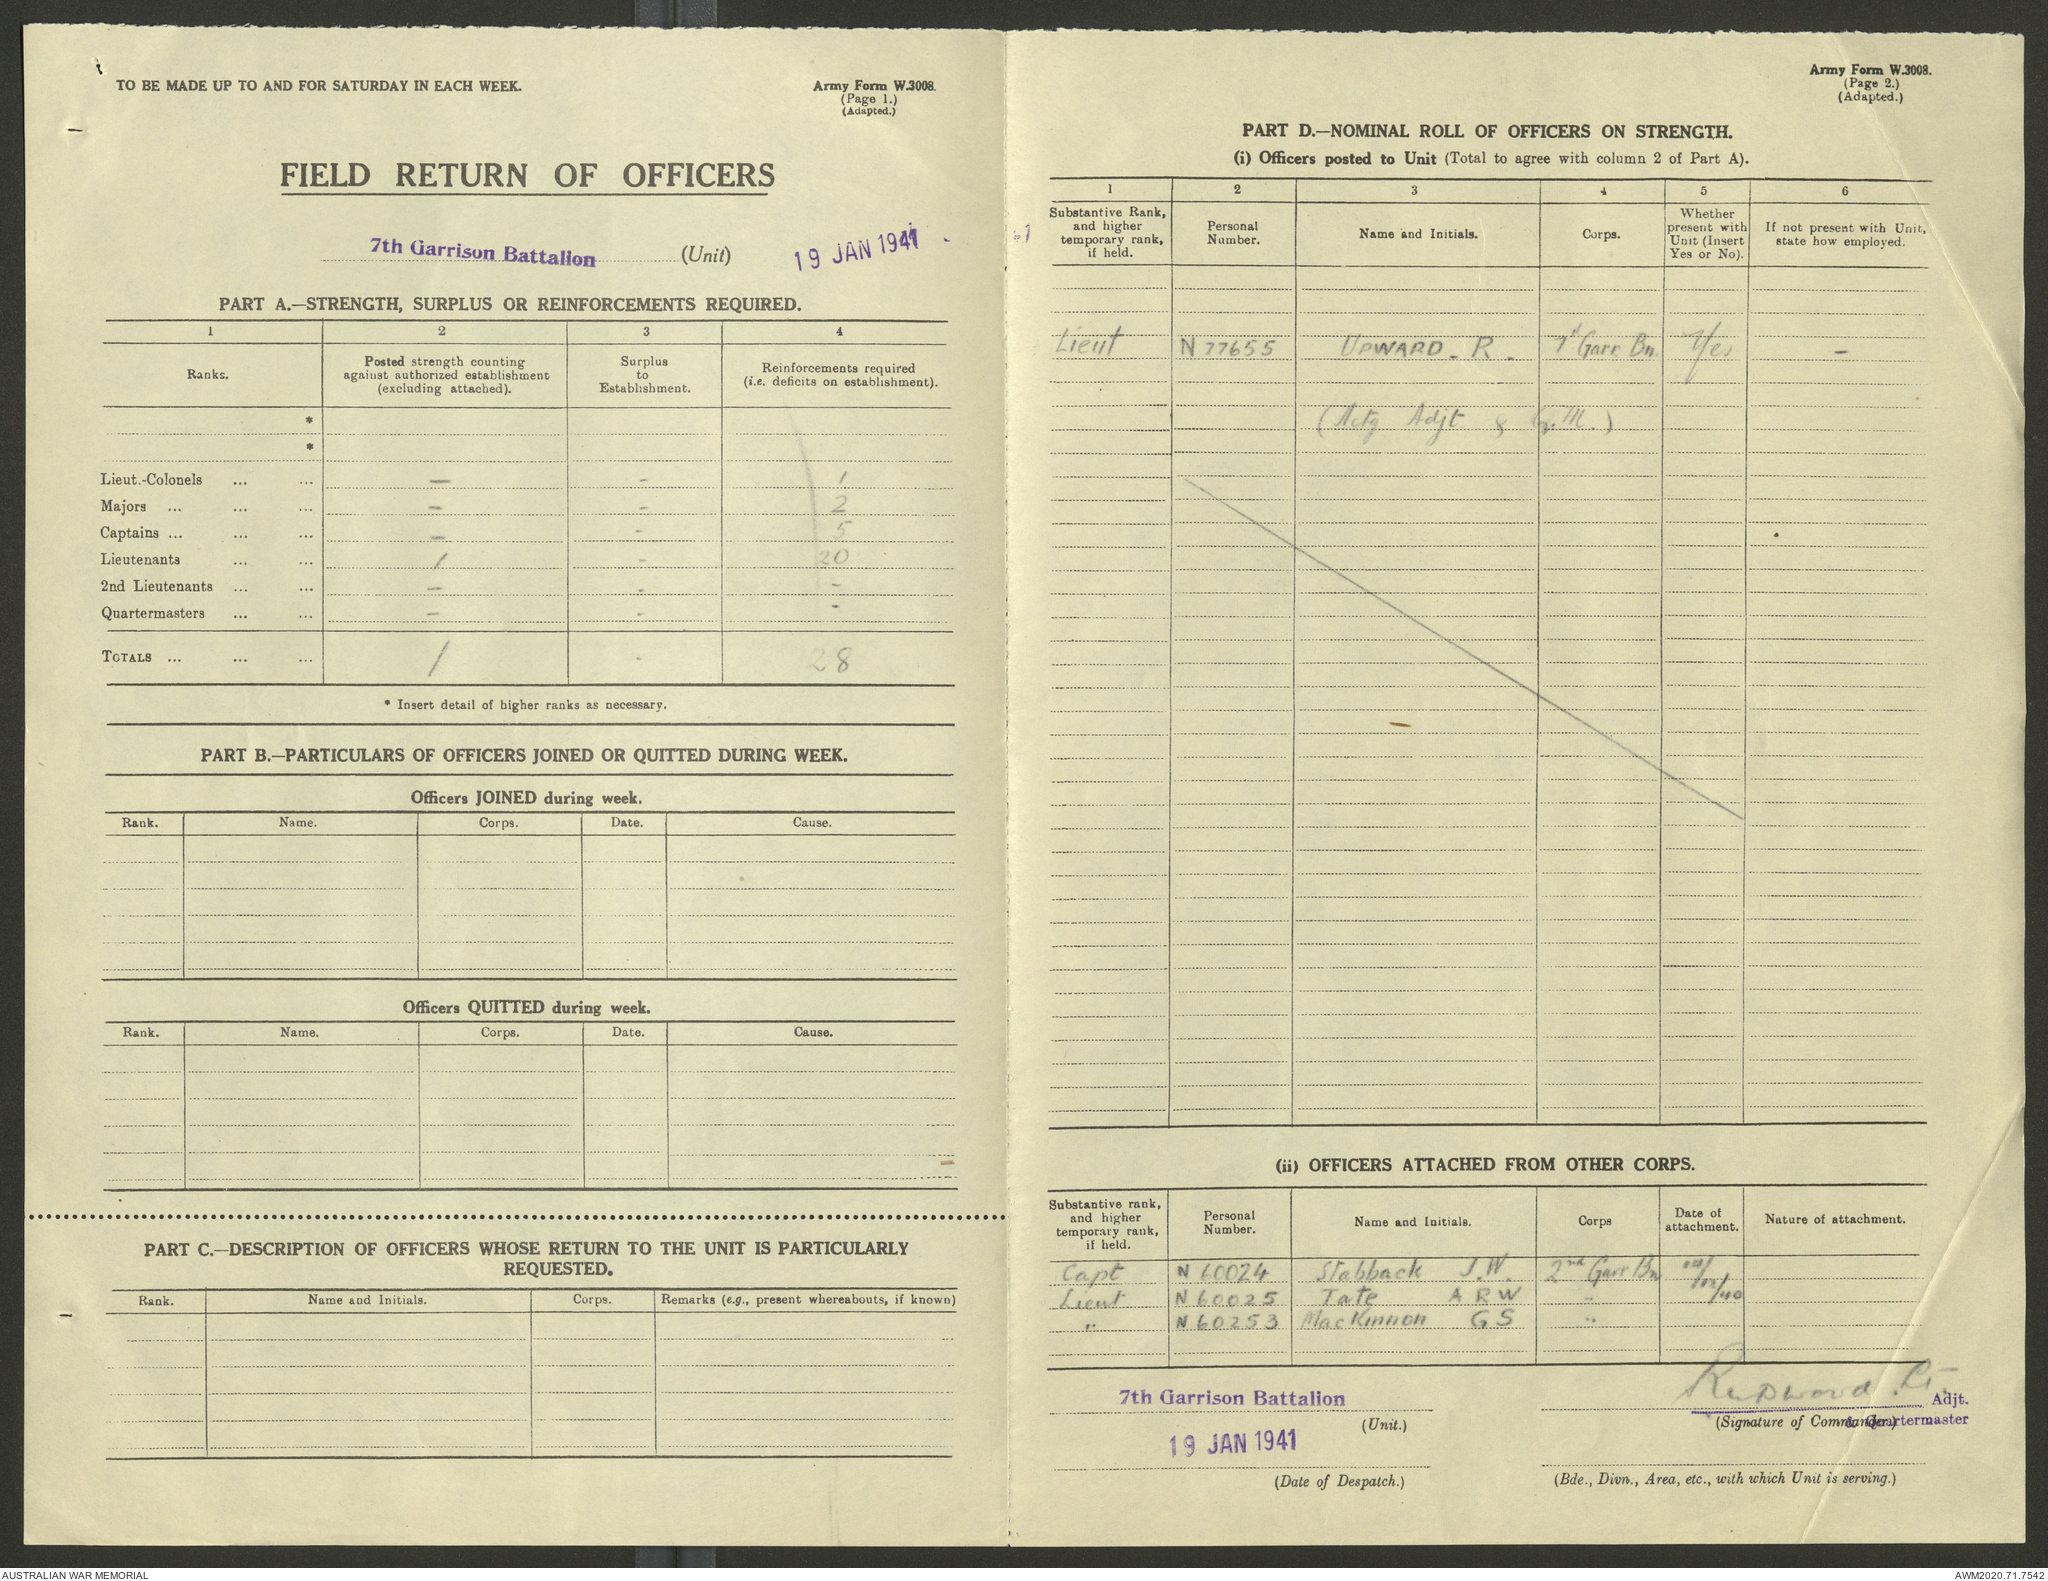 TO BE MADE UP TO AND FOR SATURDAY IN EACH WEEK.
Army Form W.3008.
(Page 1.)
(Adapted.)
FIELD RETURN OF OFFICERS
7th Garrison Battalion (Unit) 19 JAN 1941
PART A.—STRENGTH, SURPLUS OR REINFORCEMENTS REQUIRED.
1 2 3 4
Ranks. Posted strength counting against authorized establishment (excluding attached). Surplus to Establishment. Reinforcements required (i.e. deficits on establishment).
*
*
Lieut.-Colonels ... ... — - 1
Majors ... ... ... - - 2
Captains ... ... ... - - 5
Lieutenants ... ... 1 - 20
2nd Lieutenants ... ... - - -
Quartermasters ... ... - - -
TOTALS ... ... ... 1 - 28
* Insert detail of higher ranks as necessary.
PART B.—PARTICULARS OF OFFICERS JOINED OR QUITTED DURING WEEK.
Officers JOINED during week.
Rank. Name. Corps. Date. Cause.
Officers QUITTED during week.
Rank. Name. Corps. Date. Cause.
PART C.—DESCRIPTION OF OFFICERS WHOSE RETURN TO THE UNIT IS PARTICULARLY
REQUESTED.
Rank. Name and Initials. Corps. Remarks (e.g., present whereabouts, if known)
Army Form W.3008.
(Page 2.)
(Adapted.)
PART D.—NOMINAL ROLL OF OFFICERS ON STRENGTH.
(i) Officers posted to Unit (Total to agree with column 2 of Part A).
1 2 3 4 5 6
Substantive Rank, and higher temporary rank, if held. Personal Number. Name and Initials. Corps. Whether present with Unit (Insert Yes or No). If not present with Unit, state how employed.
Lieut N77655 UPWARD. R. 7th Garr Bn. Yes —
(Actg Adjt & Q.M.)
(ii) OFFICERS ATTACHED FROM OTHER CORPS.
Substantive rank, and higher temporary rank, if held. Personal Number. Name and Initials. Corps Date of attachment. Nature of attachment.
Capt N 60024 Stabback J.W. 2nd Garr Bn
Lieut N 60025 Tate A R W "
" N 60253 MacKinnon G S "
7th Garrison Battalion
(Unit.)
19 JAN 1941
(Date of Despatch.)
RUpward. Lt. Adjt.
(Signature of Commander) & Quartermaster
(Bde., Divn., Area, etc., with which Unit is serving.)
AUSTRALIAN WAR MEMORIAL
AWM2020.71.7542